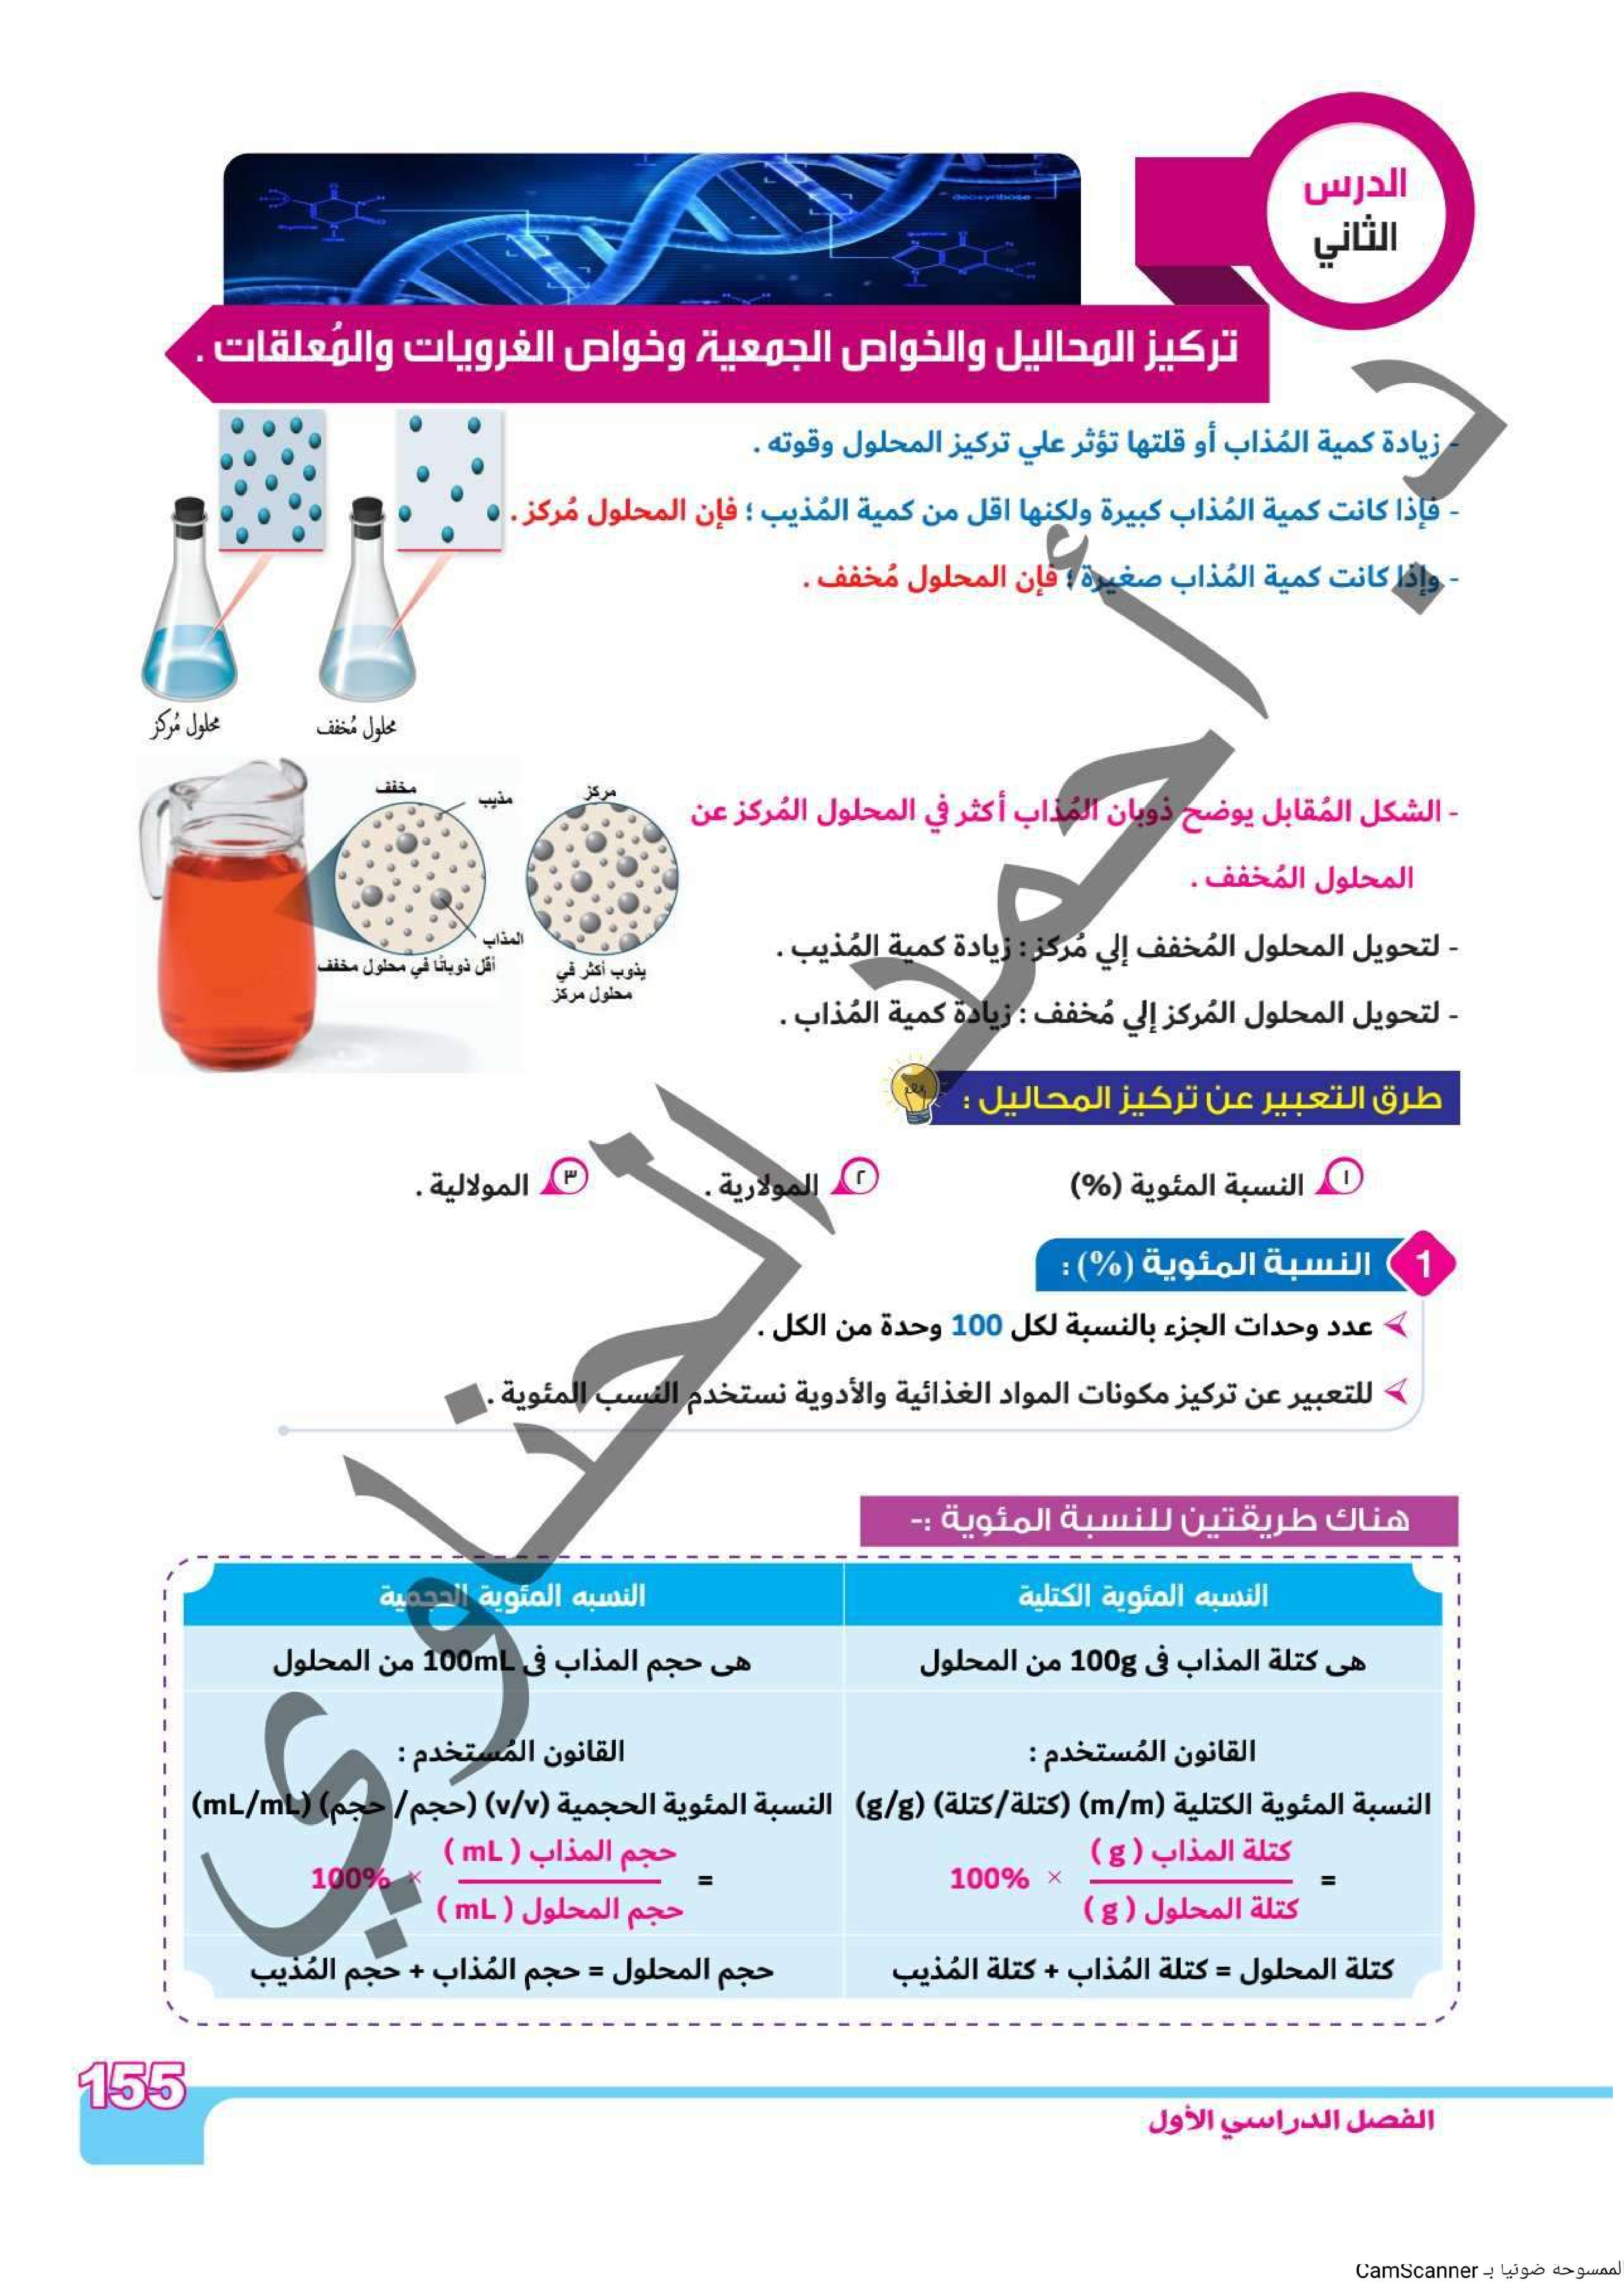 الدرس
الثاني
تركيز المحاليل والخواص الجمعية وخواص الغرويات والمُعلقات .
- زيادة كمية المُذاب أو قلتها تؤثر علي تركيز المحلول وقوته .
- فإذا كانت كمية المُذاب كبيرة ولكنها اقل من كمية المُذيب ؛ فإن المحلول مُركز .
- وإذا كانت كمية المُذاب صغيرة ؛ فإن المحلول مُخفف .
محلول مُخفف
محلول مُركز
- الشكل المُقابل يوضح ذوبان المُذاب أكثر في المحلول المُركز عن
المحلول المُخفف .
مركز
مخفف
مذيب
المذاب
يذوب أكثر في
محلول مركز
أقل ذوبانًا في محلول مخفف
- لتحويل المحلول المُخفف إلي مُركز : زيادة كمية المُذيب .
- لتحويل المحلول المُركز إلي مُخفف : زيادة كمية المُذاب .
طرق التعبير عن تركيز المحاليل :
١ النسبة المئوية (%)
٢ المولارية .
٣ المولالية .
1 النسبة المئوية (%) :
عدد وحدات الجزء بالنسبة لكل 100 وحدة من الكل .
للتعبير عن تركيز مكونات المواد الغذائية والأدوية نستخدم النسب المئوية .
هناك طريقتين للنسبة المئوية :-
النسبه المئوية الكتلية
النسبه المئوية الحجمية
هى كتلة المذاب فى 100g من المحلول
هى حجم المذاب فى 100mL من المحلول
القانون المُستخدم :
النسبة المئوية الكتلية (m/m) (كتلة/كتلة) (g/g)
= كتلة المذاب ( g ) / كتلة المحلول ( g ) × 100%
القانون المُستخدم :
النسبة المئوية الحجمية (v/v) (حجم/ حجم) (mL/mL)
= حجم المذاب ( mL ) / حجم المحلول ( mL ) × 100%
كتلة المحلول = كتلة المُذاب + كتلة المُذيب
حجم المحلول = حجم المُذاب + حجم المُذيب
د. أحمد الحناوي
155
الفصل الدراسي الأول
لممسوحة ضوئيا بـ CamScanner